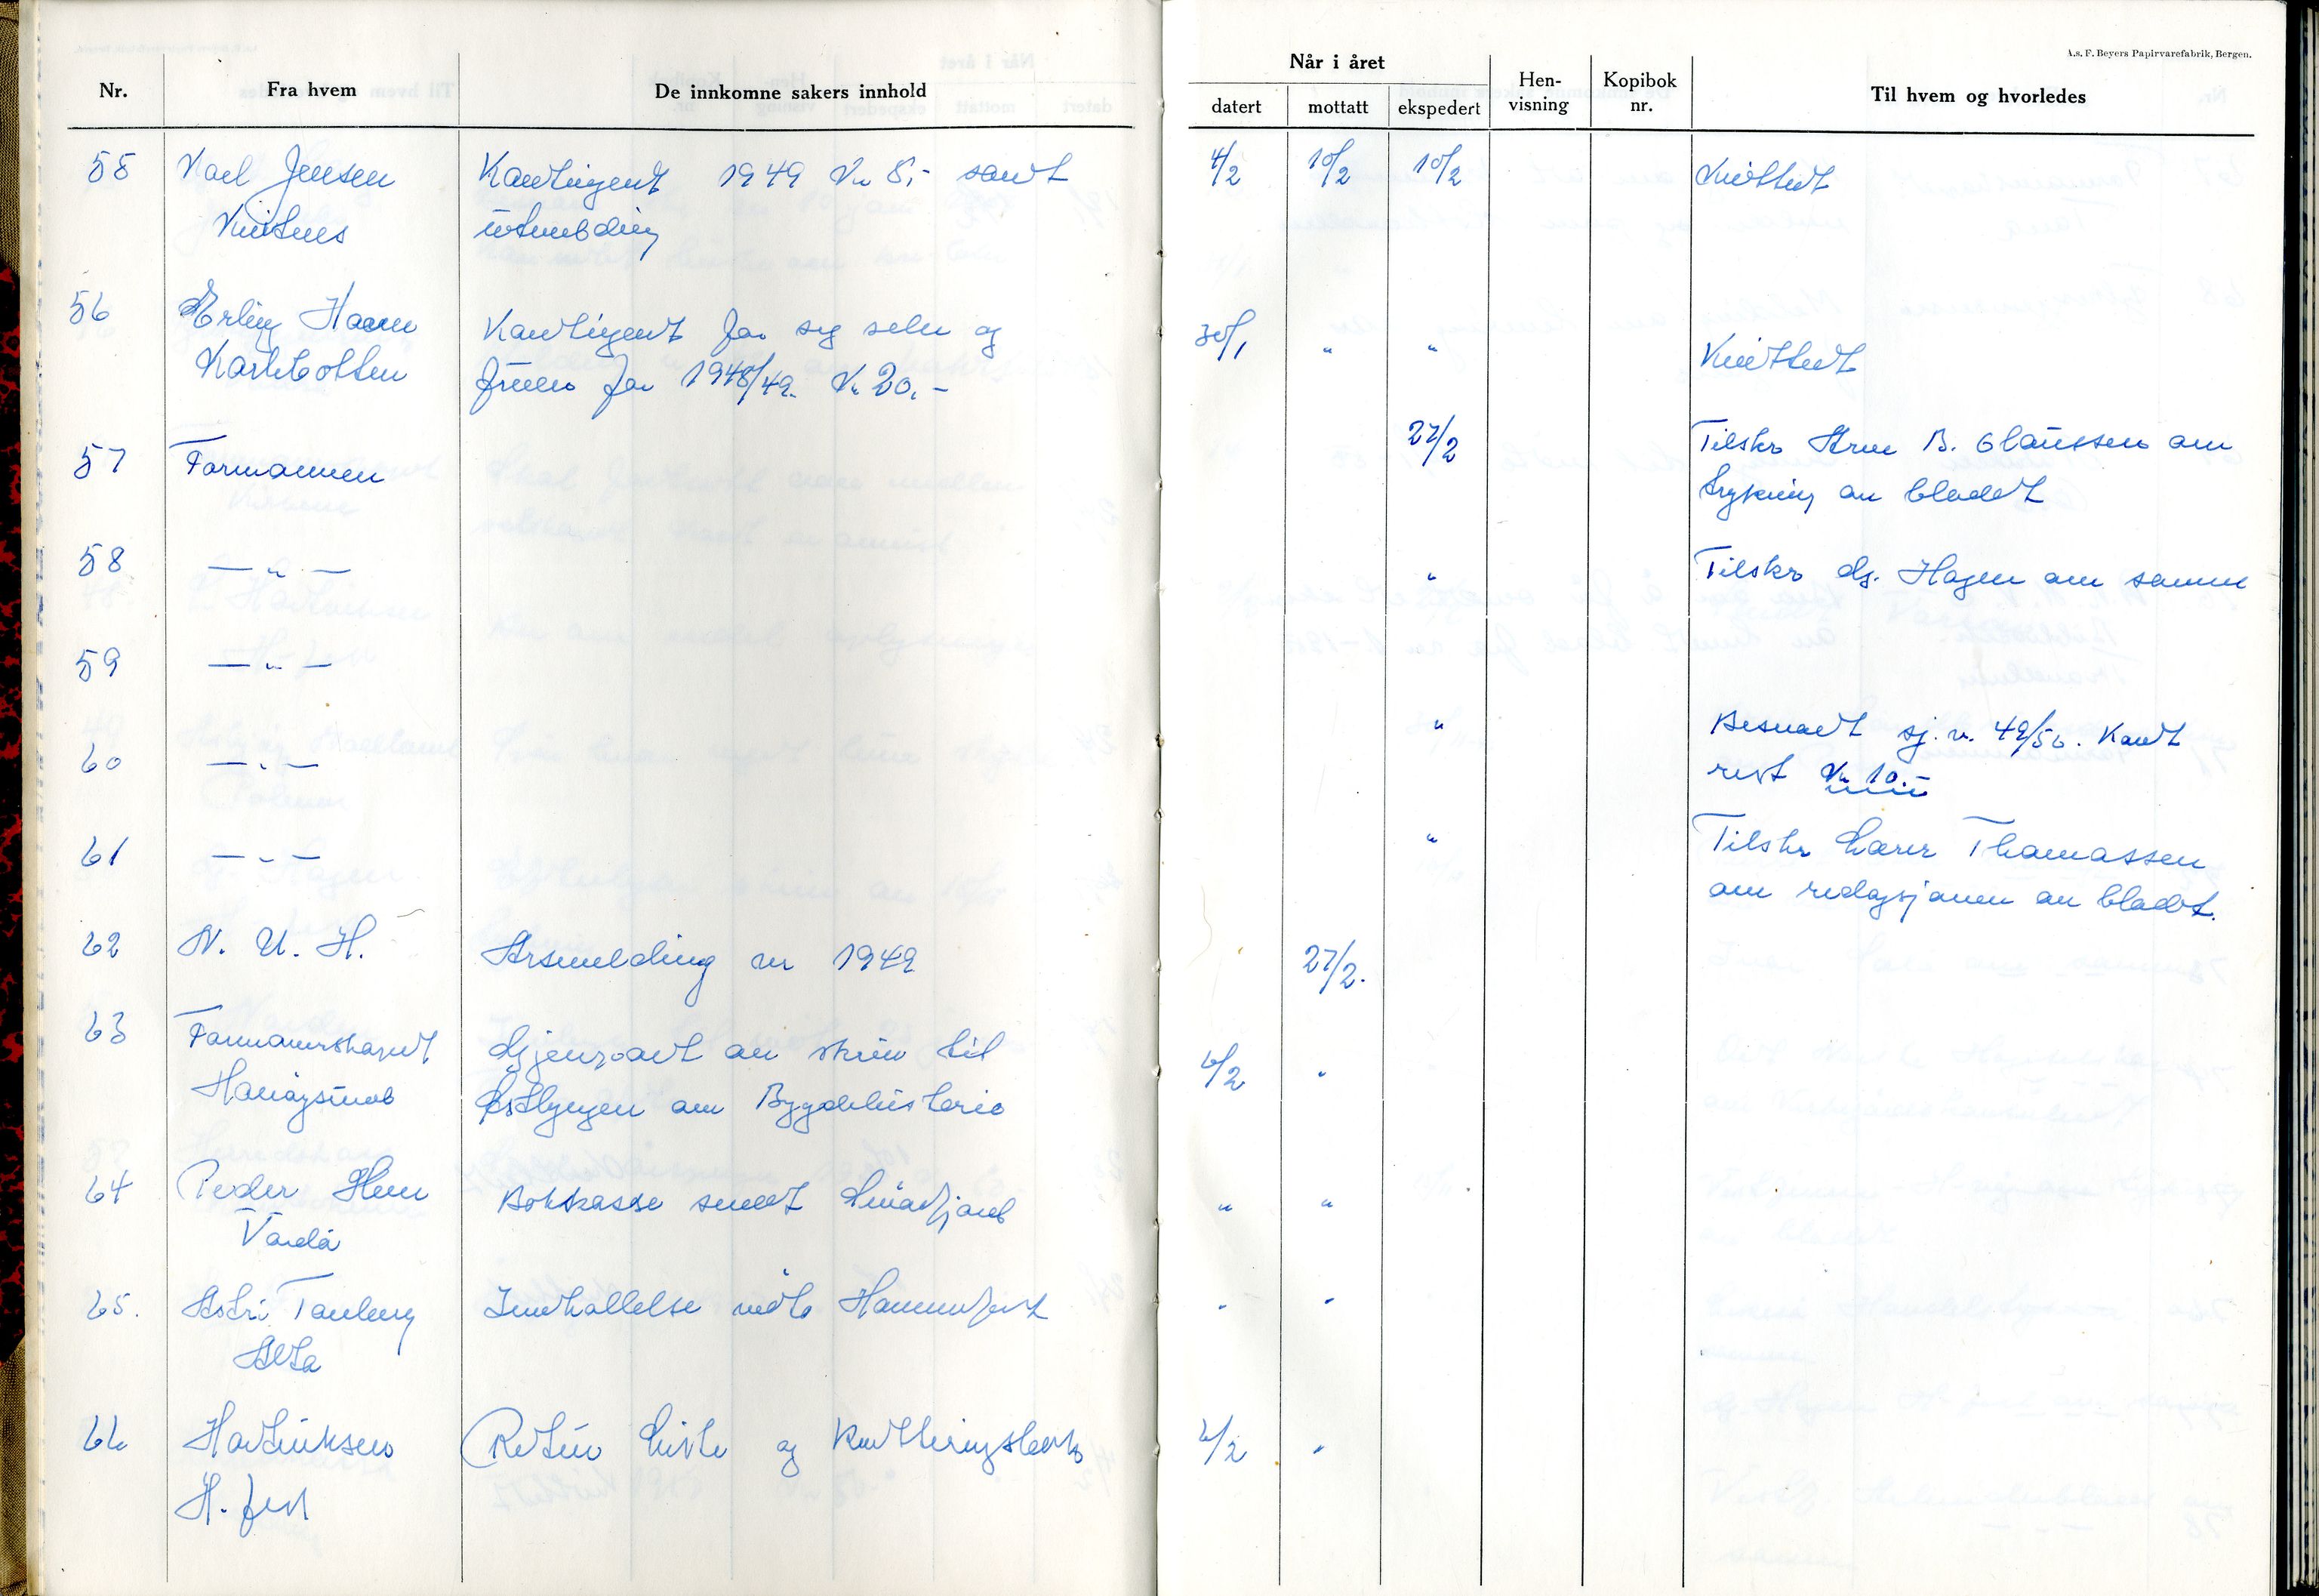 A.s. F. Beyers Papirvarefabrik, Bergen.
Nr. Fra hvem De innkomne sakers innhold Når i året Hen- Kopibok Til hvem og hvorledes
datert mottatt ekspedert visning nr.
55 Karl Jensen Kontingent 1949 Kr 5,- samt 4/2 10/2 10/2 Kvittert
utmelding
56 Erling Haven Kontingent for seg selv og 30/1 " " Kvittert
Karlebotten fruen for 1948/49. Kr 20,-
57 Formannen 27/2 Tilskr Arne B. Claussen om
trykning av bladet
58 — " — " Tilskr dg. Hagen om samme
59 — " —
60 — " — " Besvart sj. v. 49/50. Kont
rest Kr 10.-
61 — " — " Tilskr Lærer Thomassen
om redaksjonen av bladet.
62 N. U. H. Årsmelding for 1949 27/2.
63 Formannskapet Gjenpart av skriv til 6/2 "
Honningsvåg Østlyngen om Bygdehistorie
64 Peder Hem Bokkasse sendt " "
Vardø
65. Astri Tanberg Innkallelse møte Hammerfest " "
Alta
66 Hartviksen Retur liste og Kvitteringsblankt 6/2 "
H. fest